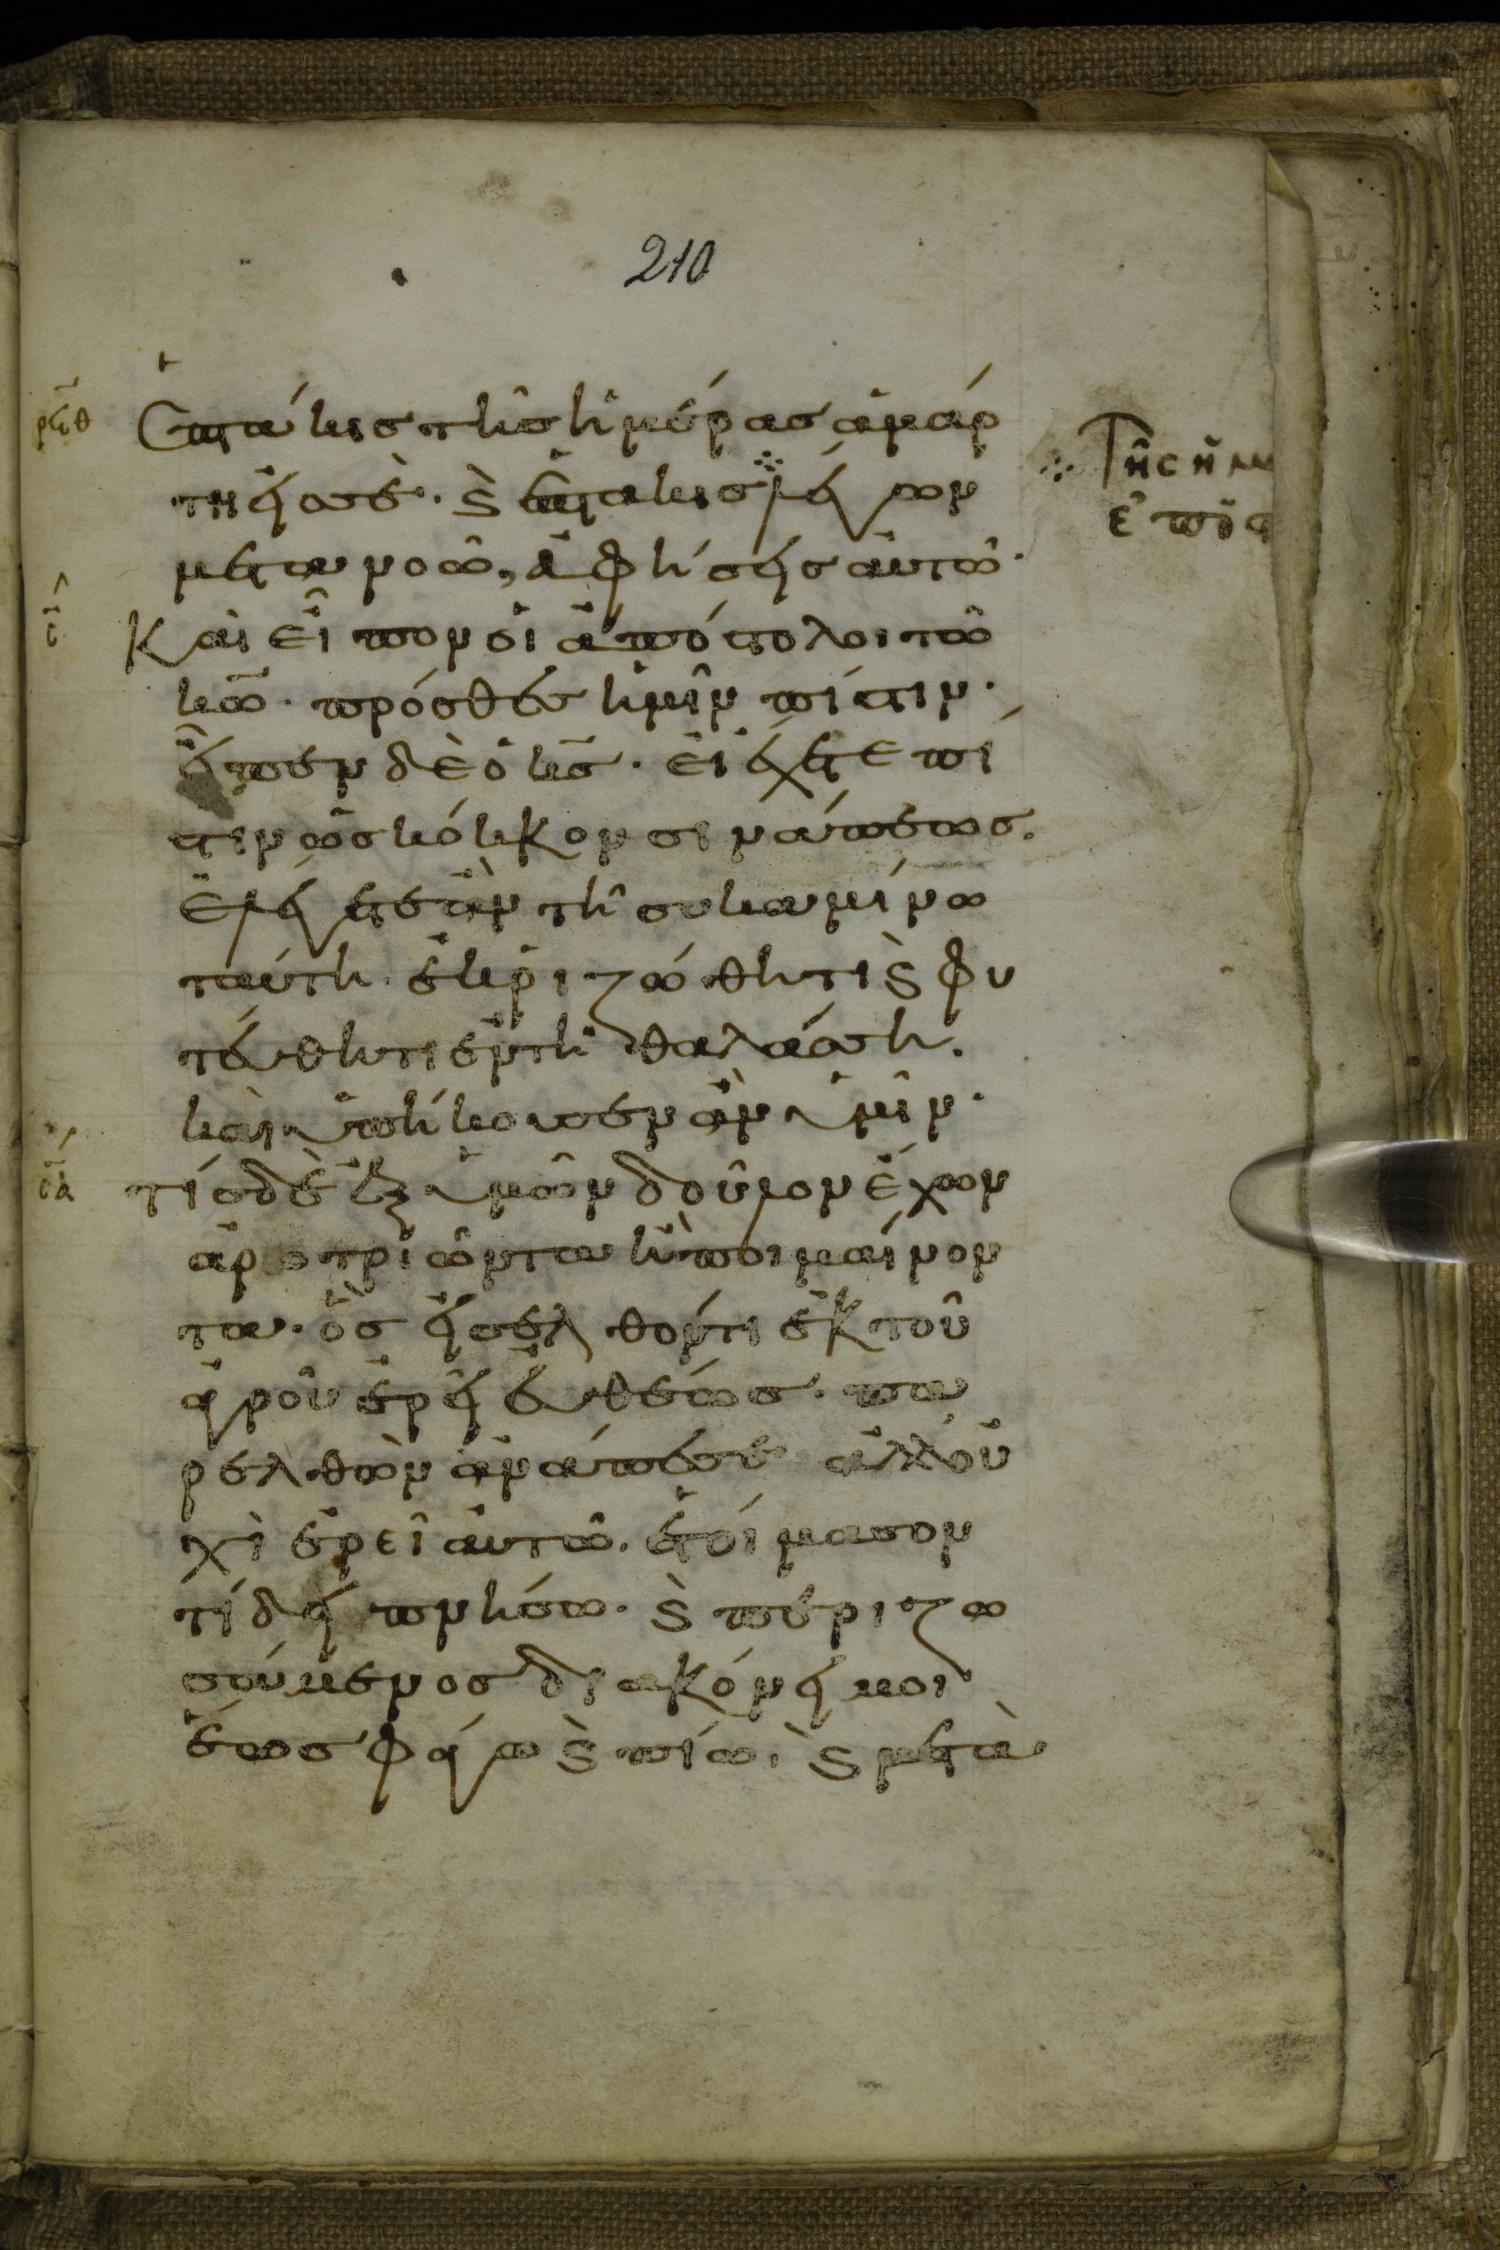 210
ἑπτάκις τῆς ἡμέρας ἁμάρ
τη εἰς σὲ· ϗ ἑπτάκις λέγων
μετανοῶ, ἀφήσεις αὐτῶ·
Καὶ εἶπον οἱ ἀπόστολοι τῶ
κ̅ω̅· πρόσθες ἡμῖν πίστιν·
εἶπεν δὲ ὁ κ̅ς̅· εἰ ἔχετε πί
στιν ὡς κόκκον σινάπεως.
ἐλέγετε ἂν τῆ συκαμίνω
ταύτη. ἐκριζώθητι ϗ φυ
τεύθητι ἐν τῆ θαλάσση.
καὶ ὑπήκουσεν ἂν ὑμῖν·
τίς δὲ ἐξ ὑμῶν δοῦλον ἔχων
ἀροτριῶντα ἢ ποιμαίνον
τα· ὃς εἰσελθόντι ἐκ τοῦ
ἀγροῦ ἐρεῖ εὐθέως· πα
ρελθὼν ἀνάπεσε ἀλλ' οὐ
χὶ ἐρεῖ αὐτῶ. ἑτοίμασον
τί δειπνήσω. ϗ περιζω
σάμενος διακόνει μοι
ἕως φάγω ϗ πίω, ϗ μετὰ
Τῆς ἡμ
ἐπισ
ρ̅ϟ̅θ
σ̅
σ̅α